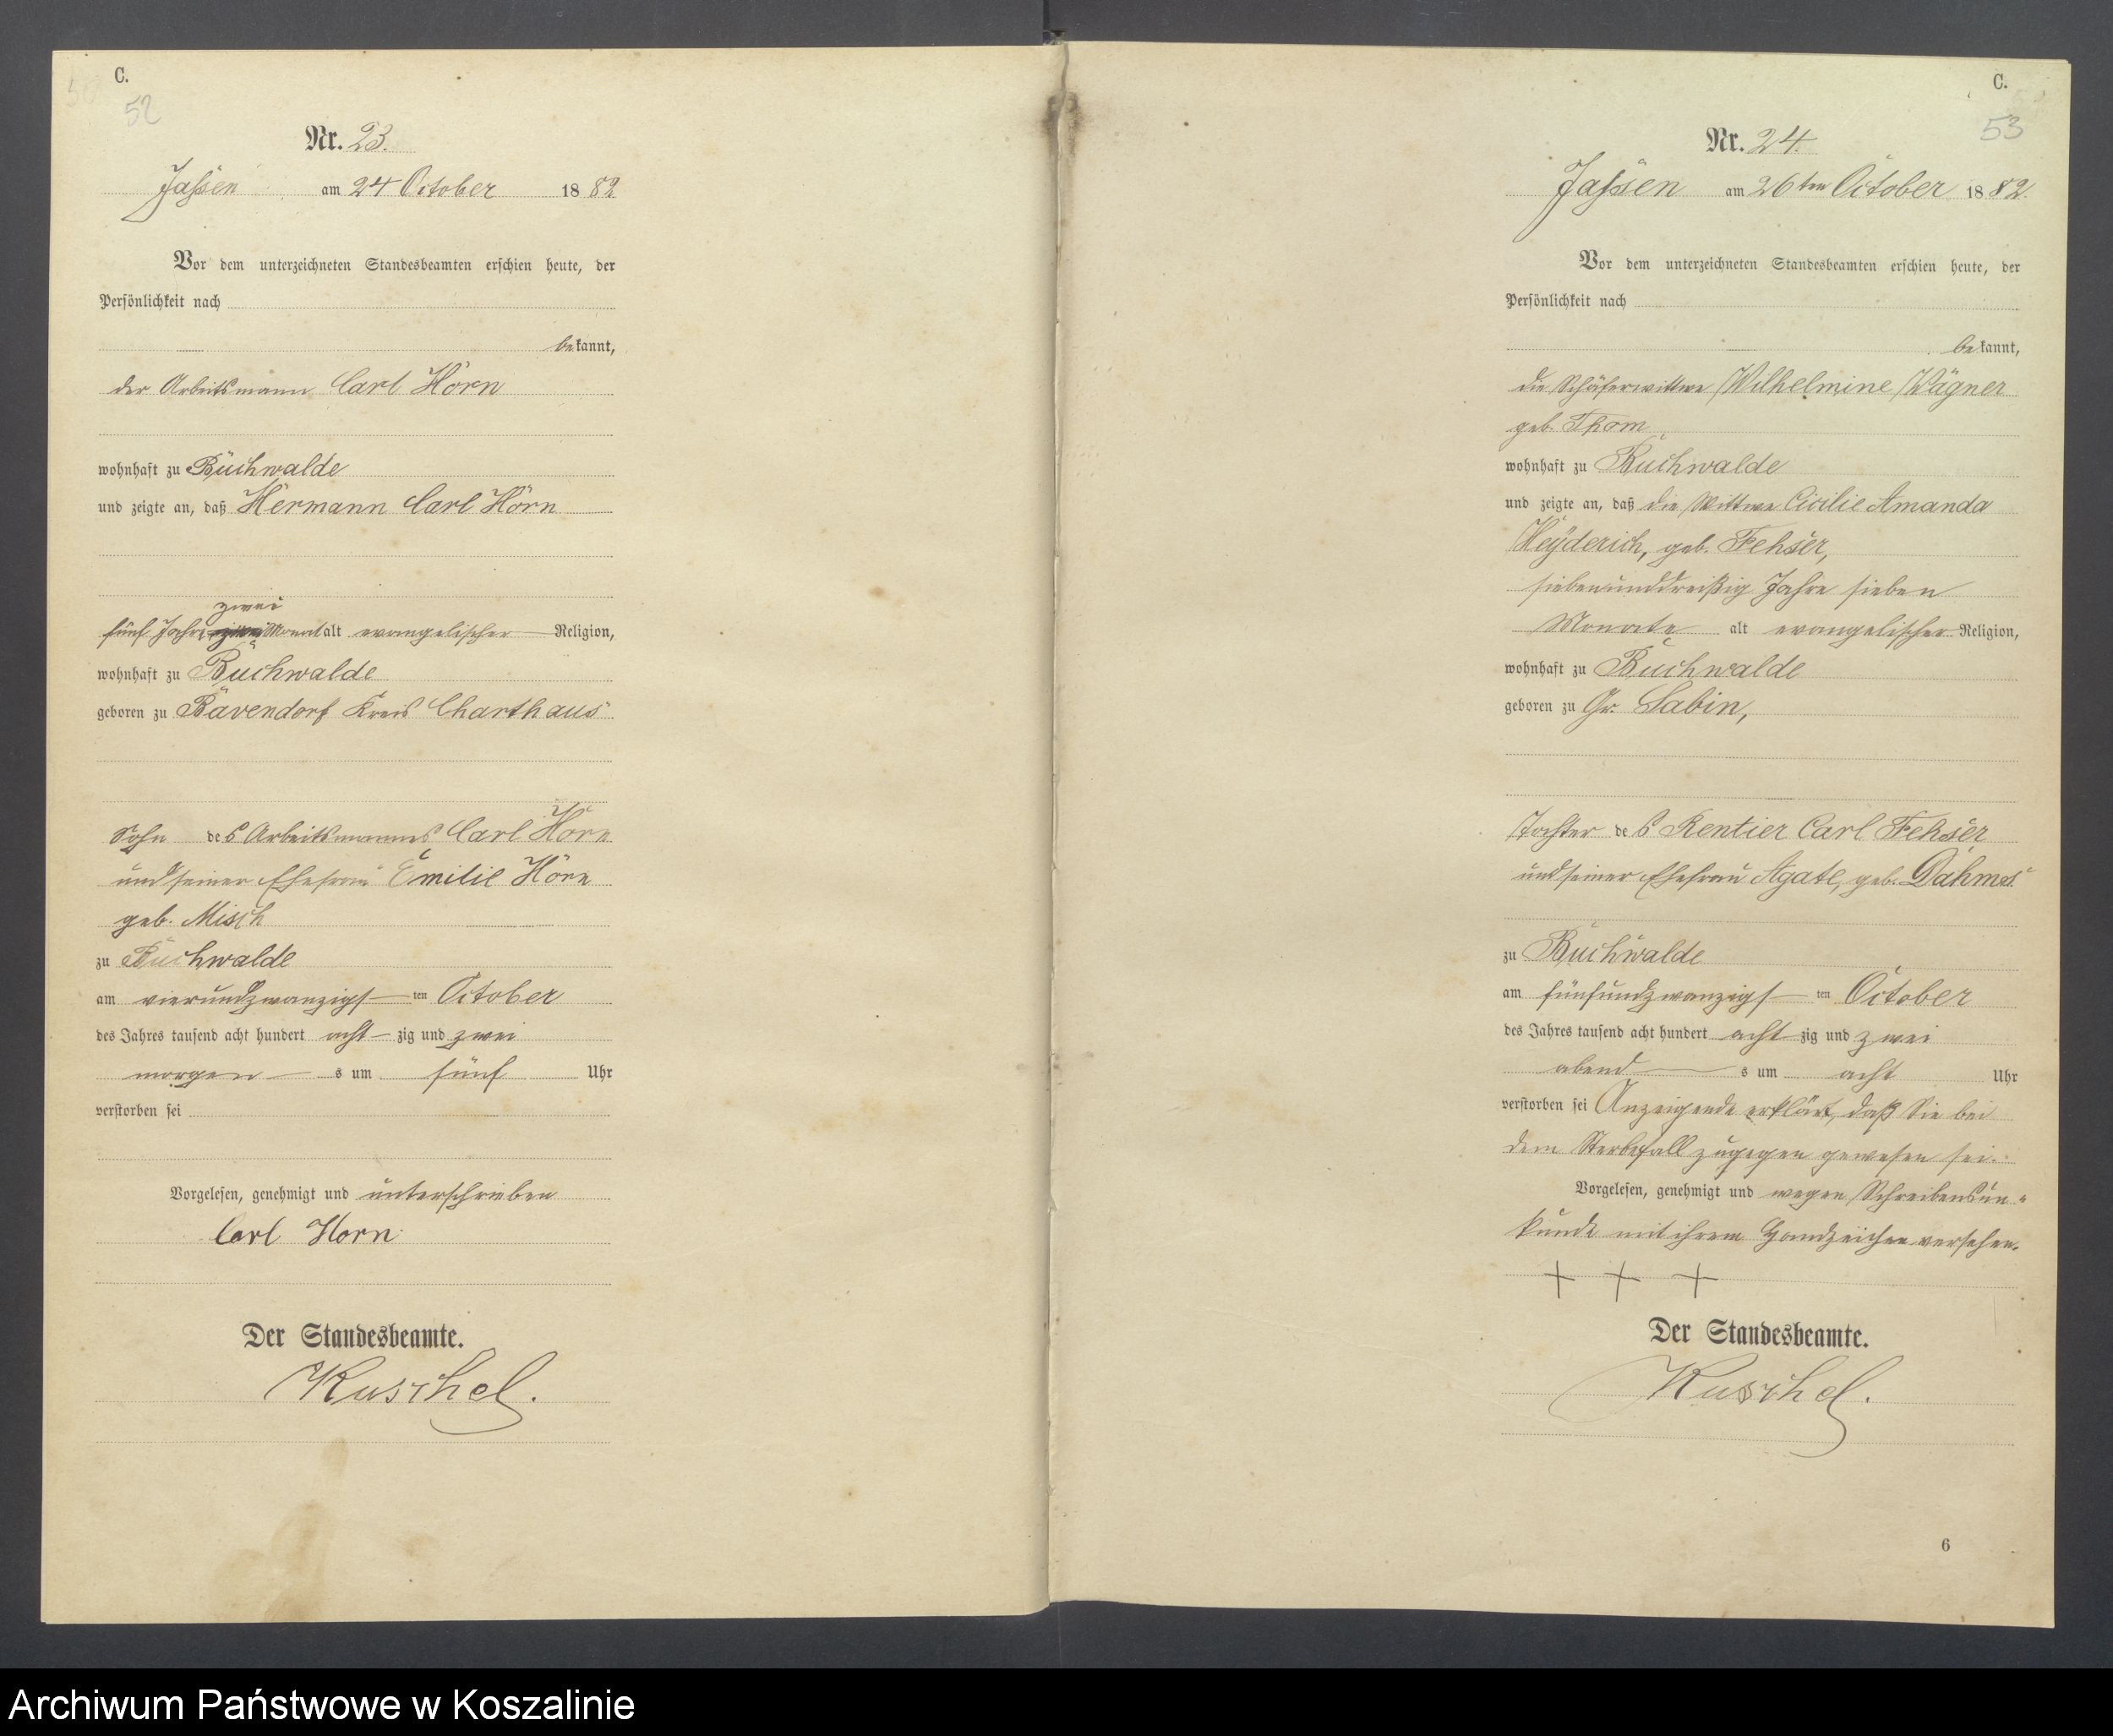 C.
52
Nr. 23.
Jassen am 24 October 1882
Vor dem unterzeichneten Standesbeamten erschien heute, der
Persönlichkeit nach
bekannt,
der Arbeitsmann Carl Horn
wohnhaft zu Buchwalde
und zeigte an, daß Hermann Carl Horn
zwei
fünf Jahre Monat alt evangelischer Religion,
wohnhaft zu Buchwalde
geboren zu Bavendorf Kreis Charthaus
Sohn des Arbeitsmanns Carl Horn
und seiner Ehefrau Emilie Horn
geb. Misch
zu Buchwalde
am vierundzwanzigsten October
des Jahres tausend acht hundert achtzig und zwei
morgens um fünf Uhr
verstorben sei
Vorgelesen, genehmigt und unterschrieben
Carl Horn
Der Standesbeamte.
Kuschel.
C.
53
Nr. 24.
Jassen am 26ten October 1882.
Vor dem unterzeichneten Standesbeamten erschien heute, der
Persönlichkeit nach
bekannt,
die Schäferwittwe Wilhelmine Wagner
geb. Thom
wohnhaft zu Buchwalde
und zeigte an, daß die Wittwe Cicilie Amanda
Heyderich, geb. Fehser,
siebenunddreißig Jahre sieben
Monate alt evangelischer Religion,
wohnhaft zu Buchwalde
geboren zu Gr. Sabin,
Tochter des Rentier Carl Fehser
und seiner Ehefrau Agate, geb. Dahms
zu Buchwalde
am fünfundzwanzigsten October
des Jahres tausend acht hundert achtzig und zwei
abends um acht Uhr
verstorben sei Anzeigende erklärt, daß Sie bei
dem Sterbefall zugegen gewesen sei.
Vorgelesen, genehmigt und wegen Schreibensun-
kunde mit ihrem Handzeichen versehen.
+ + +
Der Standesbeamte.
Kuschel.
6
Archiwum Państwowe w Koszalinie